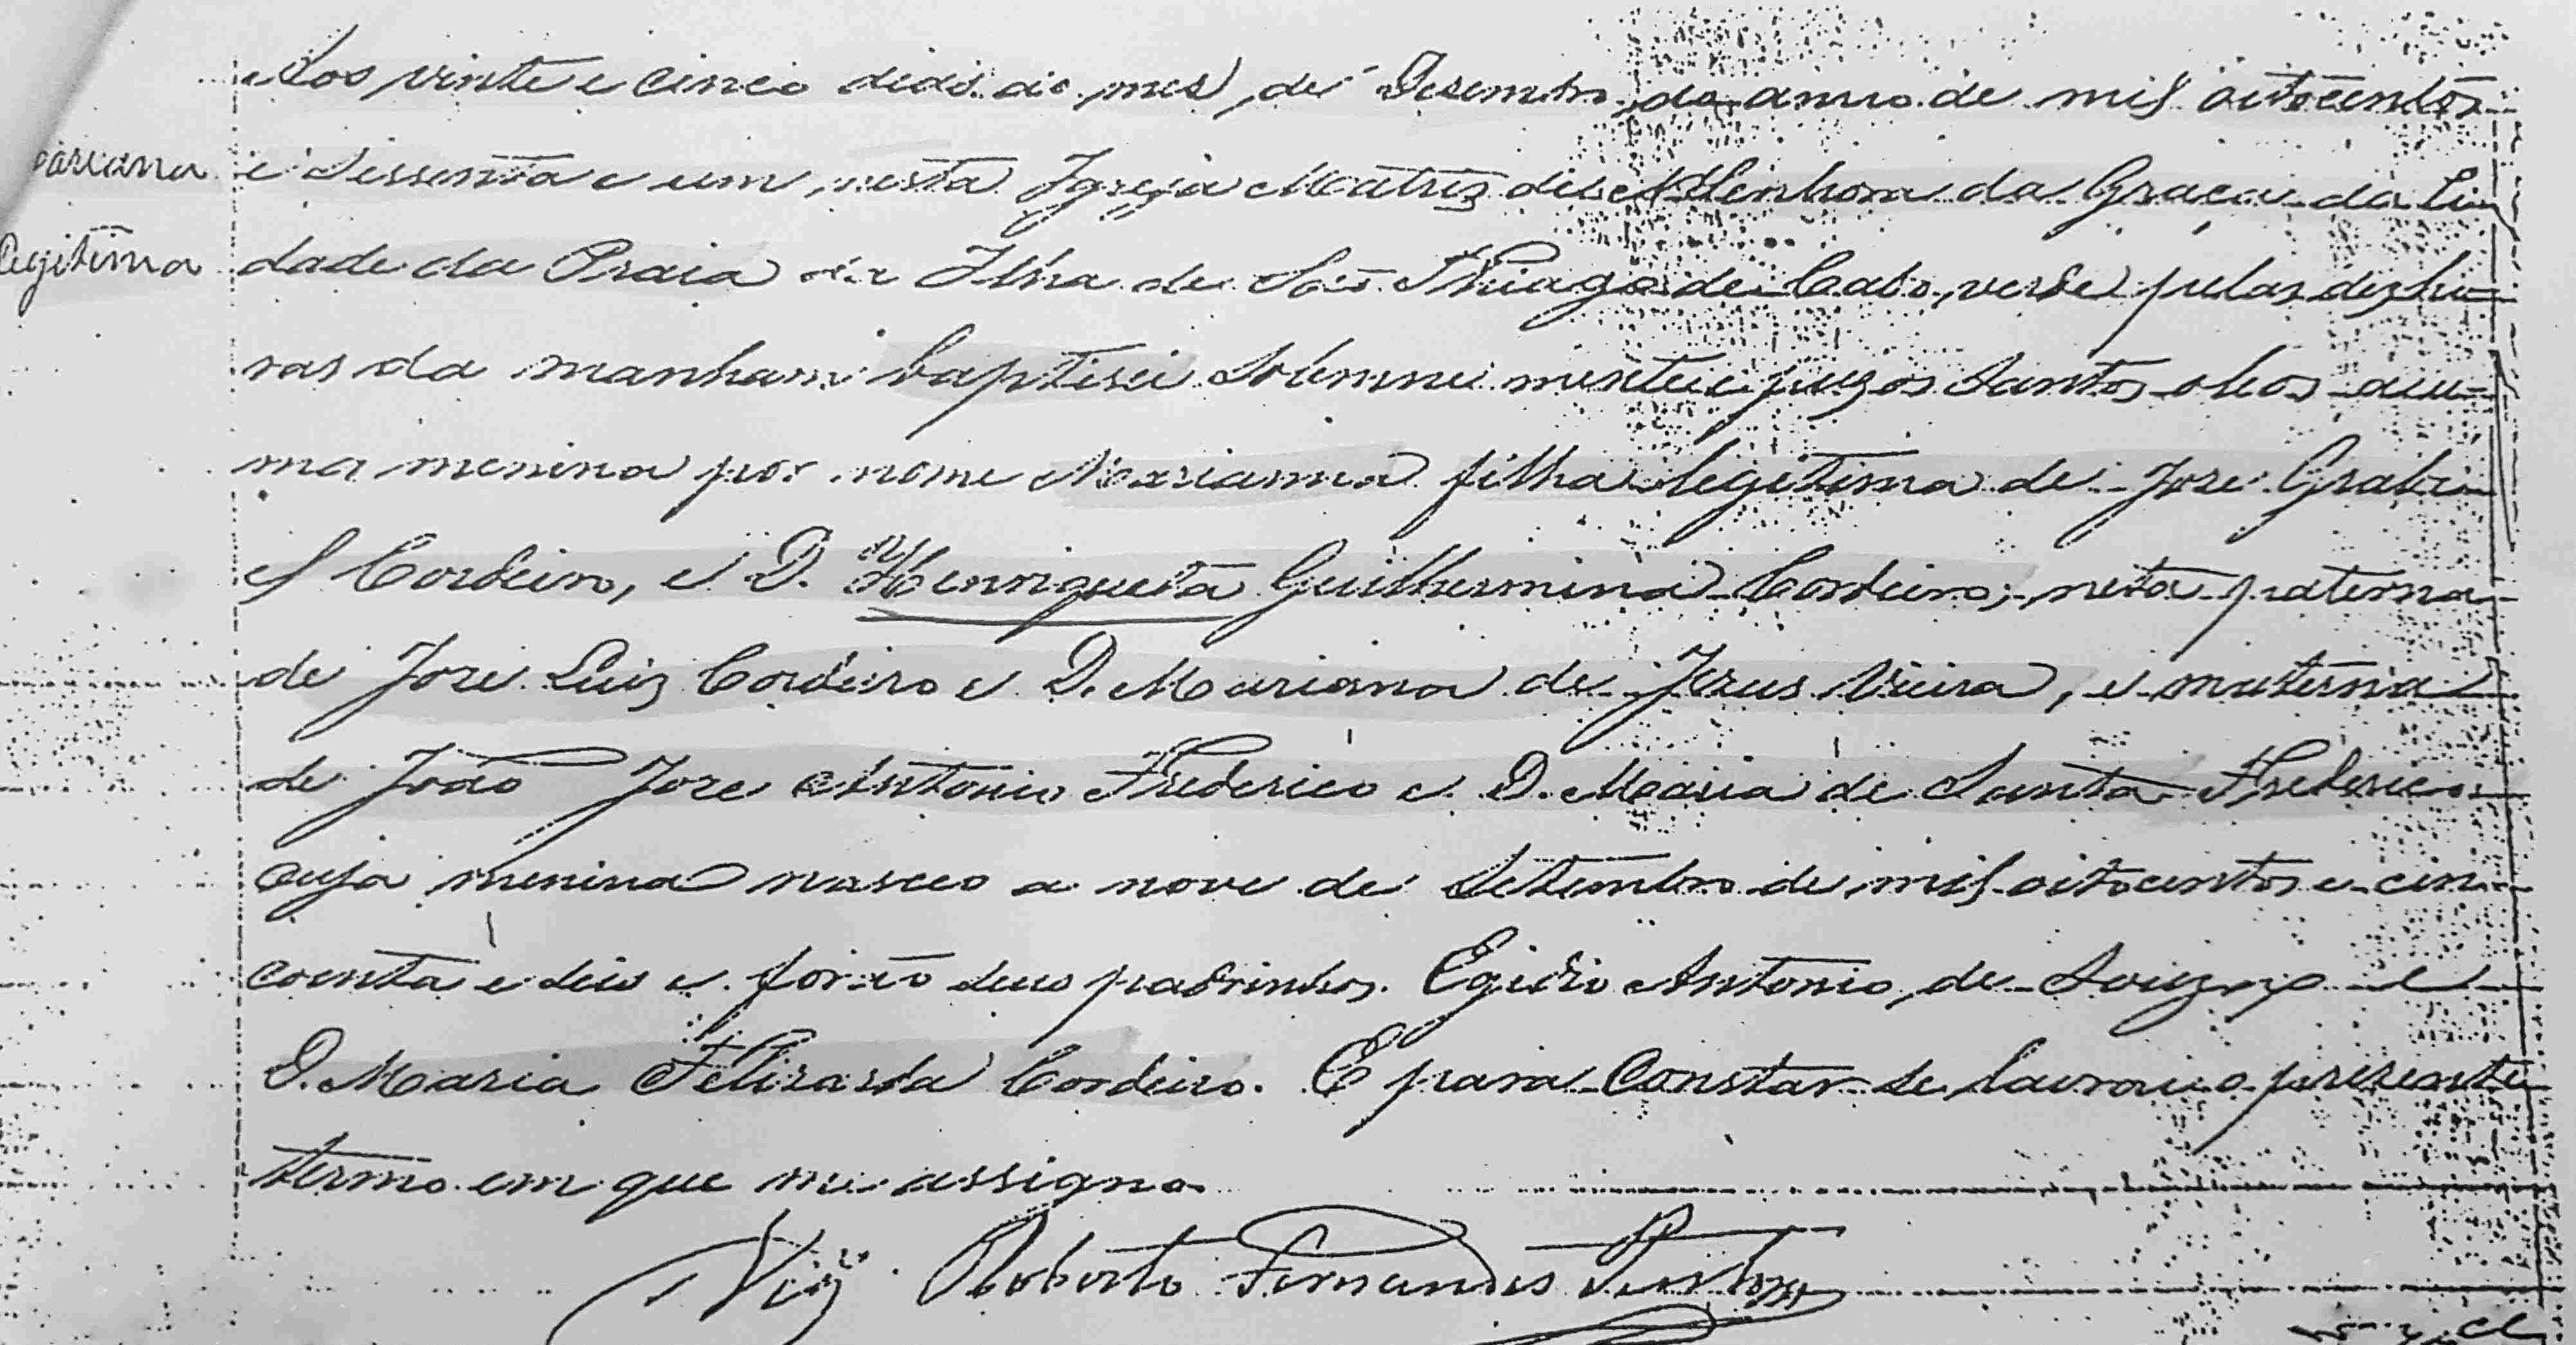 Aos vinte e cinco dias do mes de Desembro do anno de mil oitocentos
ariana
e Sessenta e um, nesta Igreja Matriz de Senhora da Graça da Ci
legitima
dade da Praia da Ilha de São Thiago de Cabo verde pelas dez ho
ras da manham baptisei Solemne mente e puz os Santos oleos a u
ma menina por nome Marianna filha legitima de Jose Grabi
el Cordeiro, e D. Henriqueta Guilhermina Cordeiro; neta paterna
de Jose Luiz Cordeiro e D. Mariana de Jezus Vieira, e materna
de João Jose Antonio Frederico e D. Maria de Santa Frederico
cuja menina nasceo a nove de Setembro de mil oitocentos e cin
coenta e dois e forão seus padrinhos Egidio Antonio de Souza e
D. Maria Felisarda Cordeiro. E para Constar se lavrou o presente
termo em que me assigno
Vigº Roberto Fernandes